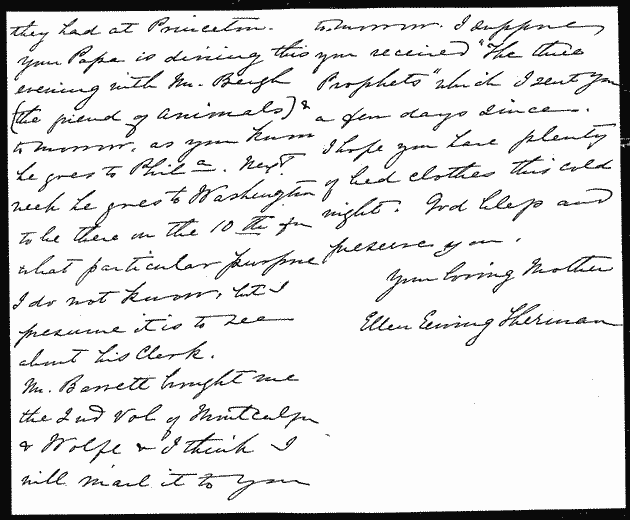 they had at Princeton.
your Papa is dining this
evening with Mr. Bergh
(the friend of animals) &
tomorrow, as you know
he goes to Phila. Next
week he goes to Washington
to be there on the 10th for
what particular purpose
I do not know, but I
presume it is to see
about his Clerk.
Mr. Barrett bought me
the 2nd Vol of Montcalm
& Wolfe & I think I
will mail it to you
tomorrow. I suppose
you received "The three
Prophets" which I sent you
a few days since.
I hope you have plenty
of bed clothes this cold
night. God bless and
preserve you.
Your loving Mother
Ellen Ewing Sherman